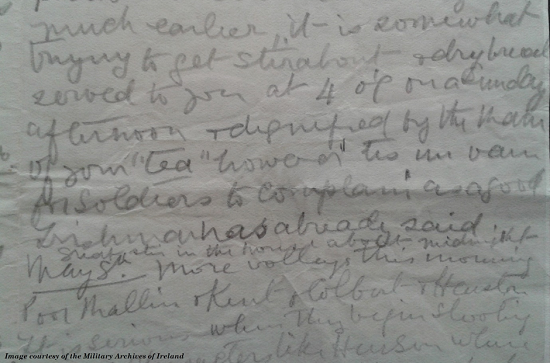 much earlier, it is somewhat
trying to get stirabout & dry bread
served to you at 4 o'c on a Sunday
afternoon & dignified by the name
of your "tea" however 'tis in vain
for soldiers to complain as a good
Irishman has already said.
in the house about midnight
May 8th More volleys this morning
Poor Mallin & Kent & Colbert & Heuston
It is serious when they begin shooting
like Heuston where
Image courtesy of the Military Archives of Ireland